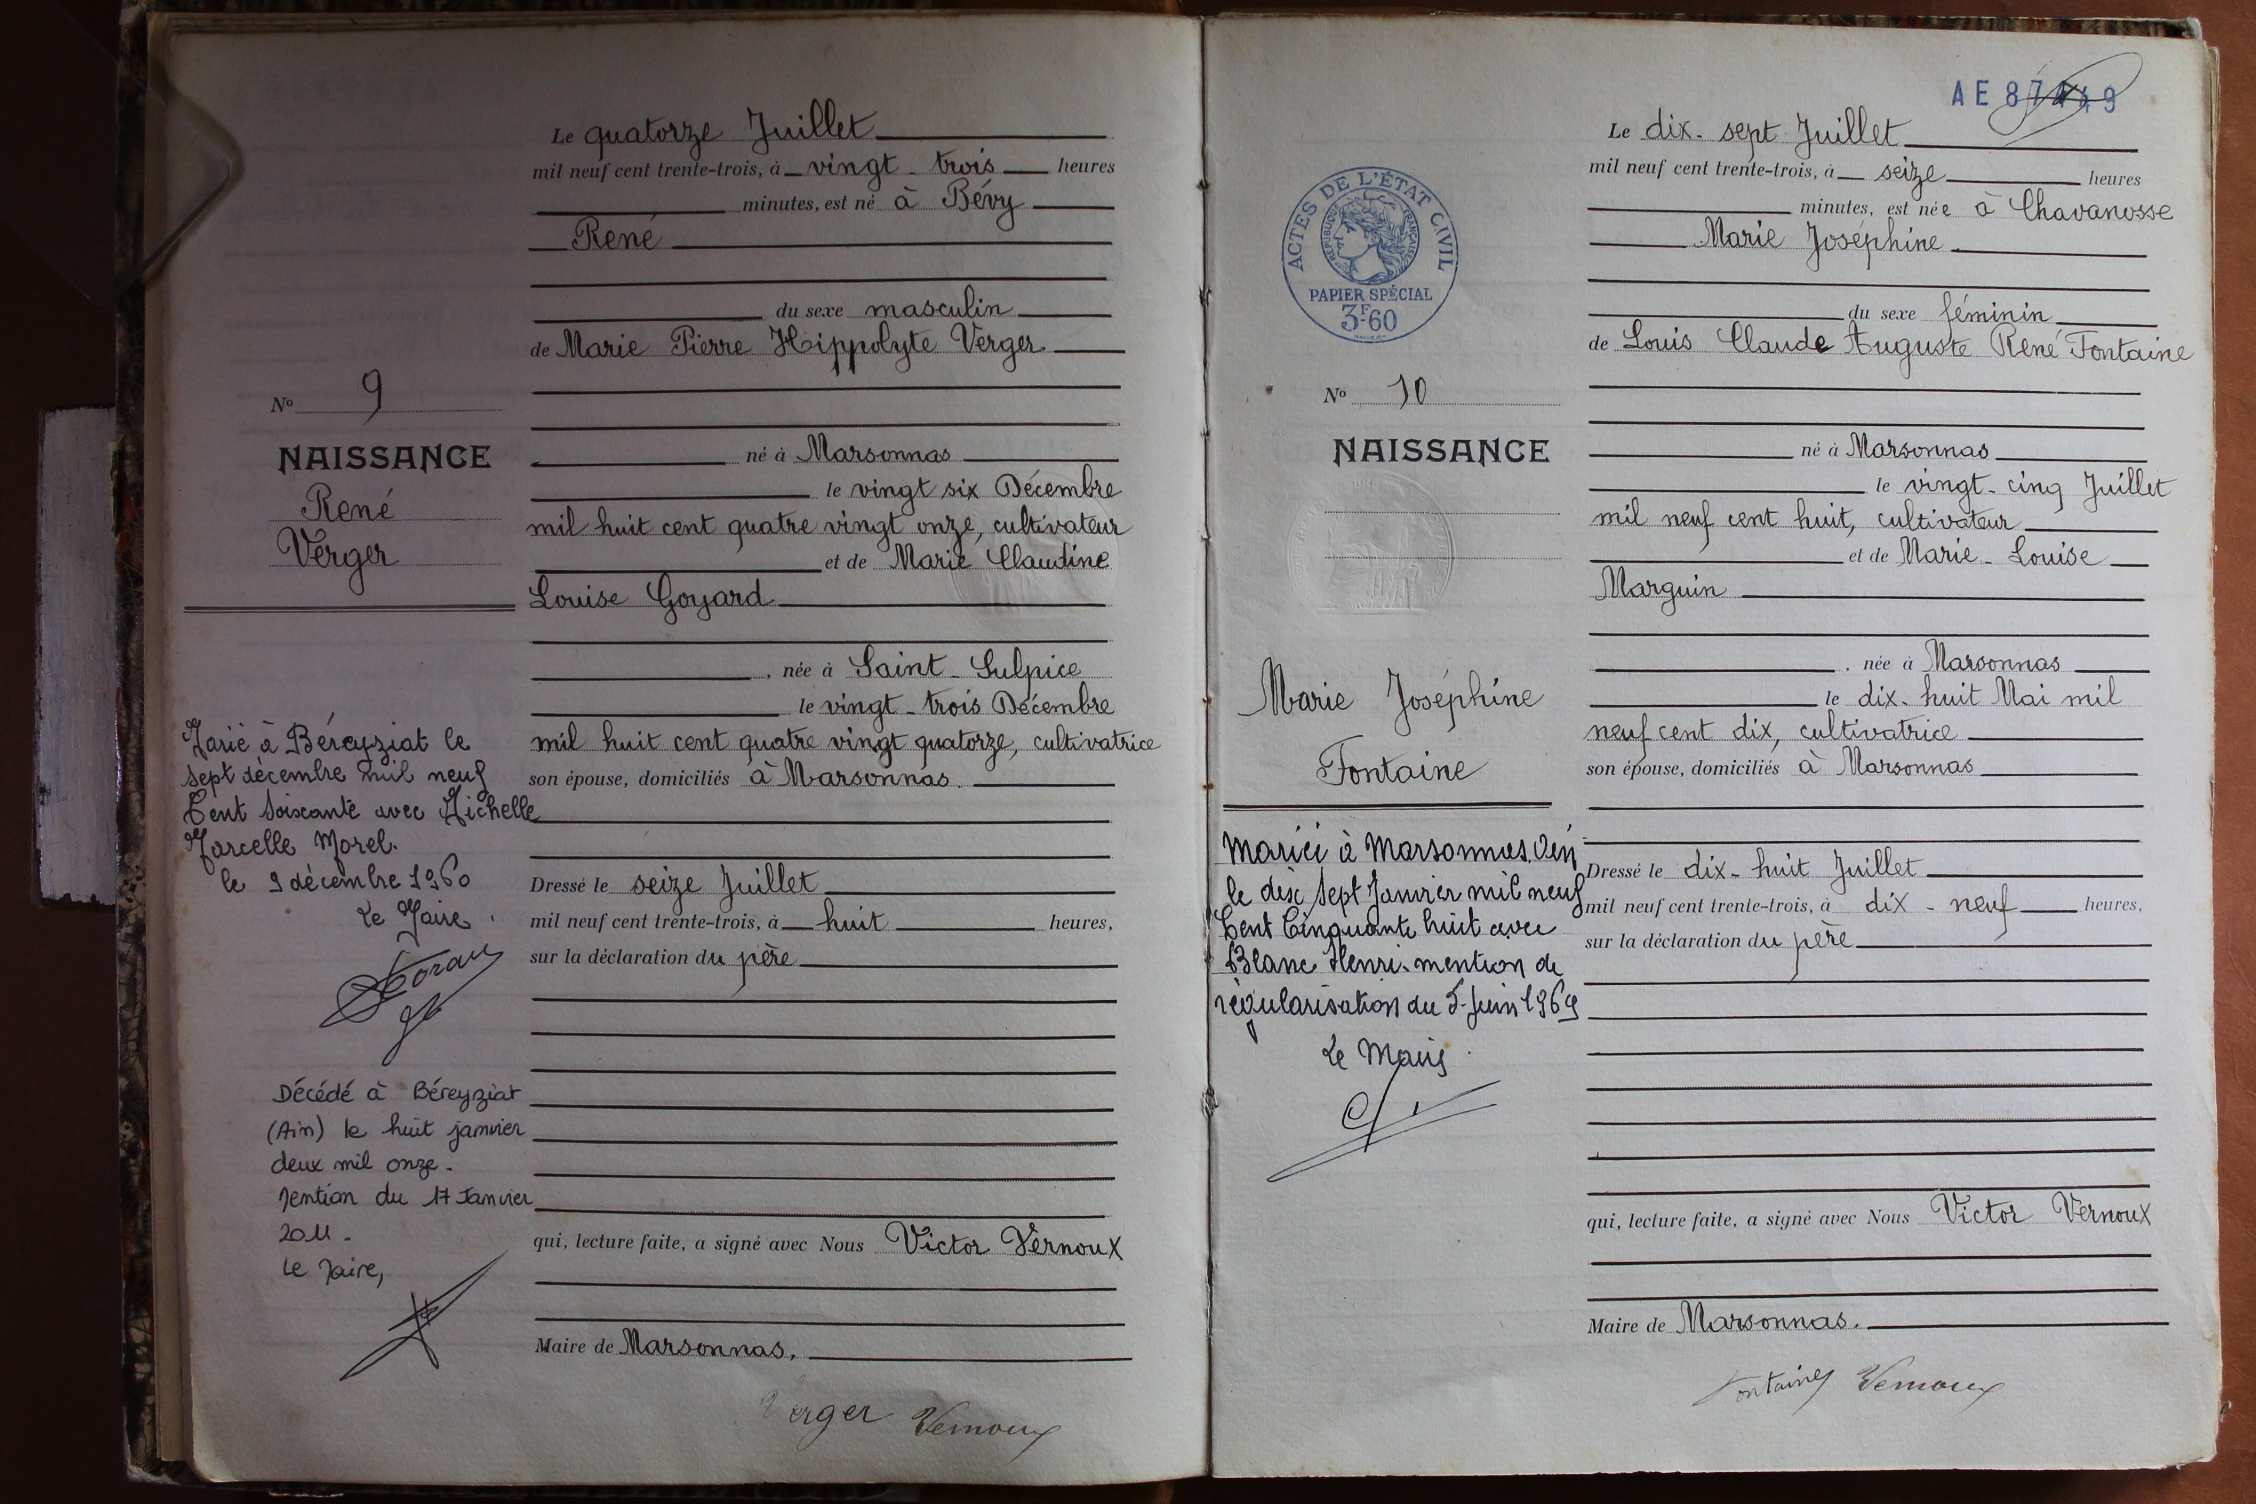 Le quatorze Juillet
mil neuf cent trente-trois, à vingt-trois heures
minutes, est né à Bévy
René
du sexe masculin
de Marie Pierre Hippolyte Verger
né à Marsonnas
le vingt six Décembre
mil huit cent quatre vingt onze, cultivateur
et de Marie Claudine
Louise Goyard
, née à Saint-Sulpice
le vingt-trois Décembre
mil huit cent quatre vingt quatorze, cultivatrice
son épouse, domiciliés à Marsonnas.
Dressé le seize Juillet
mil neuf cent trente-trois, à huit heures,
sur la déclaration du père
qui, lecture faite, a signé avec Nous Victor Vernoux
Maire de Marsonnas.
Verger Vernoux
No 9
NAISSANCE
René
Verger
Marié à Béreyziat le
sept décembre mil neuf
Cent Soixante avec Michelle
Marcelle Morel.
le 9 décembre 1960
Le Maire
Décédé à Béreyziat
(Ain) le huit janvier
deux mil onze.
Mention du 17 Janvier
2011.
Le Maire,
AE 87 49
ACTES DE L'ÉTAT CIVIL
RÉPUBLIQUE FRANÇAISE
PAPIER SPÉCIAL
3F.60
No 10
NAISSANCE
Marie Joséphine
Fontaine
Mariée à Marsonnas. Ain
le dix sept Janvier mil neuf
Cent Cinquante huit avec
Blanc Henri. mention de
régularisation du 5 Juin 1969
Le Maire
Le dix-sept Juillet
mil neuf cent trente-trois, à seize heures
minutes, est née à Chavanosse
Marie Joséphine
du sexe féminin
de Louis Claude Auguste René Fontaine
né à Marsonnas
le vingt-cinq Juillet
mil neuf cent huit, cultivateur
et de Marie-Louise
Marguin
, née à Marsonnas
le dix-huit Mai mil
neuf cent dix, cultivatrice
son épouse, domiciliés à Marsonnas
Dressé le dix-huit Juillet
mil neuf cent trente-trois, à dix-neuf heures,
sur la déclaration du père
qui, lecture faite, a signé avec Nous Victor Vernoux
Maire de Marsonnas.
Fontaine Vernoux